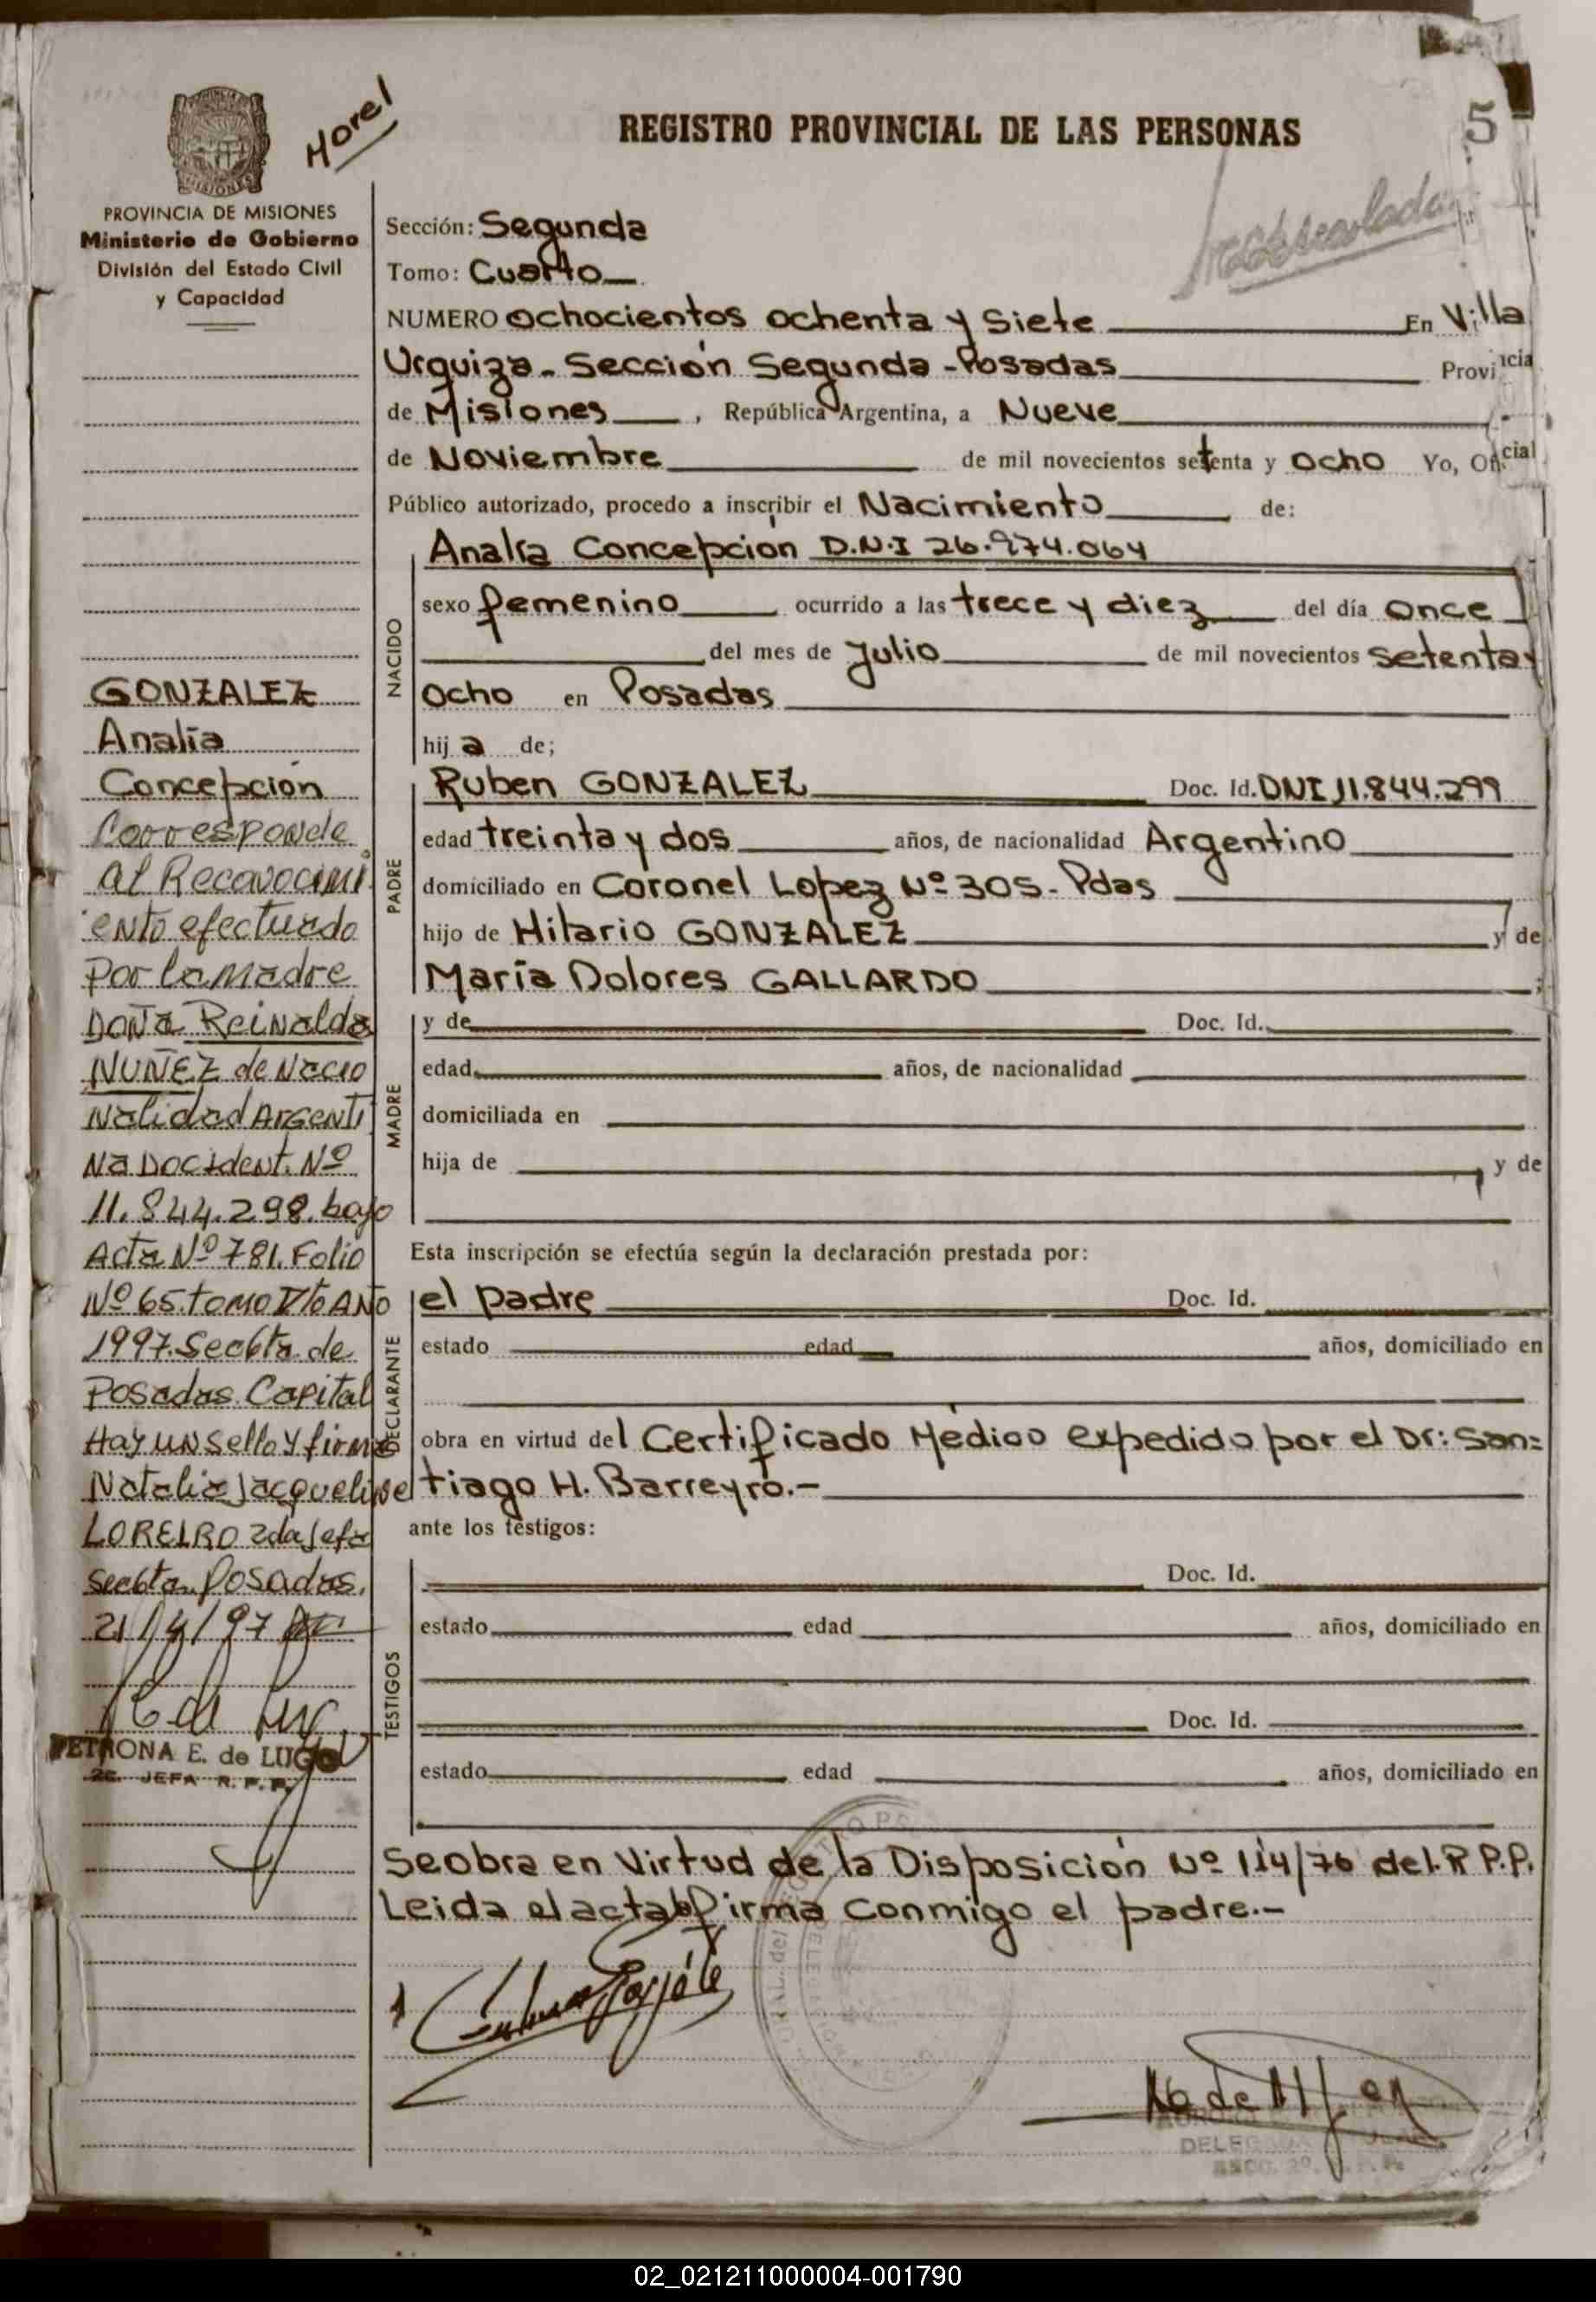 Morel
REGISTRO PROVINCIAL DE LAS PERSONAS
5
PROVINCIA DE MISIONES
Ministerio de Gobierno
División del Estado Civil
y Capacidad
Sección: Segunda
Tomo: Cuarto
NUMERO Ochocientos Ochenta y Siete En Villa
Urquiza - Sección Segunda - Posadas Provincia
de Misiones, República Argentina, a Nueve
de Noviembre de mil novecientos setenta y Ocho Yo, Oficial
Público autorizado, procedo a inscribir el Nacimiento de:
NACIDO
Analía Concepción D.N.I 26.974.064
sexo femenino ocurrido a las trece y diez del día Once
del mes de Julio de mil novecientos setenta y
Ocho en Posadas
hij a de;
PADRE
Ruben GONZALEZ Doc. Id. DNI 11.844.299
edad treinta y dos años, de nacionalidad Argentino
domiciliado en Coronel Lopez Nº 305 - Pdas
hijo de Hilario GONZALEZ y de
María Dolores GALLARDO ;
MADRE
y de Doc. Id.
edad años, de nacionalidad
domiciliada en
hija de y de
Esta inscripción se efectúa según la declaración prestada por:
DECLARANTE
el padre Doc. Id.
estado edad años, domiciliado en
obra en virtud del Certificado Médico expedido por el Dr: San=
tiago H. Barreyro.-
ante los testigos:
TESTIGOS
Doc. Id.
estado edad años, domiciliado en
Doc. Id.
estado edad años, domiciliado en
Se obra en Virtud de la Disposición Nº 114/76 del R.P.P.
Leida el acta firma Conmigo el padre.-
GONZALEZ
Analía
Concepción
Corresponde
al Reconocimi
ento efectuado
Por la Madre
DOÑA Reinalda
NUÑEZ de Nacio
Nalidad Argenti
Na Doc ident. Nº
11.844.298. bajo
Acta Nº 781. Folio
Nº 65. tomo Vto Año
1997. Sec 6ta de
Posadas Capital
Hay un sello y firma
Natalia Jacqueline
LOREIRO 2da Jefa
Sec 6ta. Posadas,
21/4/97
PETRONA E. de LUGO
2a. JEFA R. P. P.
02_021211000004-001790